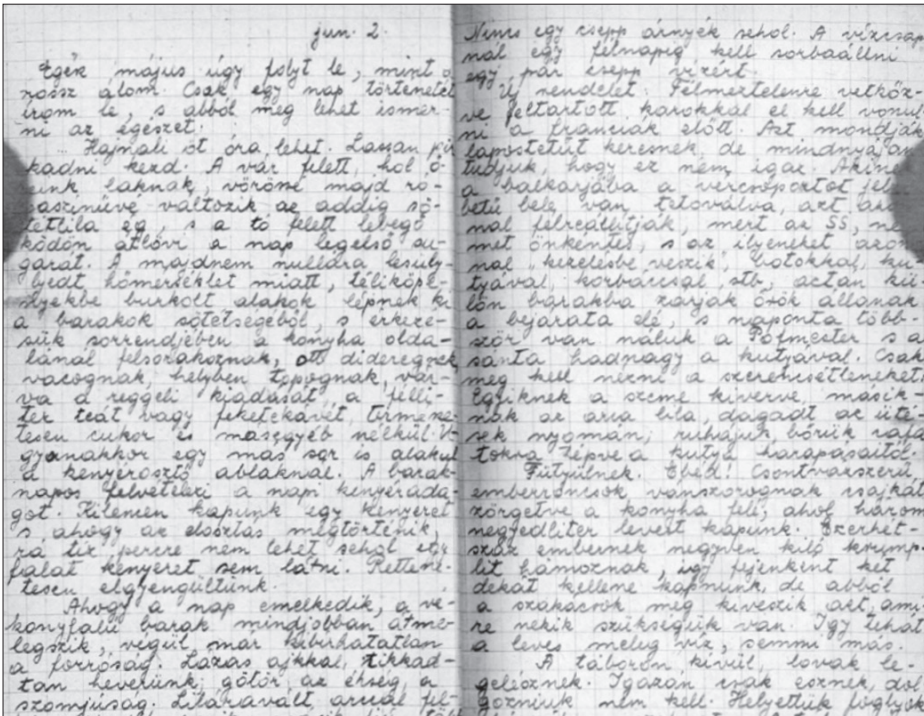 jun. 2.
Egész május úgy folyt le, mint
rossz álom. Csak egy nap történetét
irom le, s abból meg lehet ismer-
ni az egészet.
Hajnali öt óra lehet. Lassan pir
kadni kezd. A vár felett, hol ő
laknak, vörössé majd ró-
zsaszinüvé változik az addig sö-
tétlila ég, s a tó felett lebegő
ködön átlövi a nap legelső su-
garát. A majdnem nullára lesüly-
lyedt hőmérséklet miatt, téliköpe-
nyekbe burkolt alakok lépnek ki
a barakok sötétségéből, s érkezé-
sük sorrendjében a konyha olda-
lánál felsorakoznak, ott dideregnek
vacognak, helyben topognak, vár-
va a reggeli kiadását, a félli-
ter teát vagy feketekávét, termé-
szetesen cukor és másegyéb nélkül. U-
gyanakkor egy más sor is alakul
a kenyérosztó ablaknál. A barak-
napos felvételezi a napi kenyéradа-
got. Kilencen kapunk egy kenyeret
s ahogy az elosztás megtörténik,
rá tiz percre nem lehet sehol egy
falat kenyeret sem látni. Rettene-
tesen elgyengültünk.
Ahogy a nap emelkedik, a vé-
konyfalú barak mindjobban átme-
legszik, végül már kibirhatatlan
a forróság. Lázas ajkkal, tikkad-
tan heverünk, gyötör az éhség, a
szomjúság. arccal fel-
Nincs egy csepp árnyék sehol. A vizcsap
nál egy félnapig kell sorbaállni
egy pár csepp vizért.
Új rendelet. Félmeztelenre vetkőz-
ve feltartott karokkal el kell vonul
ni a franciák előtt. Azt mondják
lapostetüt keresnek, de mindnyájan
tudjuk, hogy ez nem igaz. Akinek
a balkarjába a vércsoportot jel
betű bele van tetoválva, azt
nal félreállitják, mert az SS, né
met önkéntes, s az ilyeneket azon
nal „kezelésbe veszik", botokkal, ku
tyával, korbáccsal, stb, aztán kü
lön barakba zárják őrök állanak
a bejárata elé, s naponta több-
ször van náluk a Polmester s a
sánta hadnagy a kutyával. Csak
meg kell nézni a szerencsétleneket.
Egyiknek a szeme kiverve, másik-
nak az arca lila dagadt az üté-
sek nyomán; ruhájuk, bőrük
tokra tépve a kutya harapásaitól.
Fütyülnek. Ebéd! Csontvázszerü
emberroncsok vánszorognak csajkát
zörgetve a konyha felé, ahol három
negyedliter levest kapunk. Ezerhét-
száz embernek negyven kiló krump-
lit hámoznak, igy fejenként két
dekát kellene kapnunk, de abból
a szakácsok még kiveszik azt, ami
re nekik szükségük van. Igy tehát
a leves meleg viz, semmi más.
A táboron kivül, lovak le-
gelésznek. Igazán csak esznek, dol
gozniuk nem kell. Helyettük foglyok